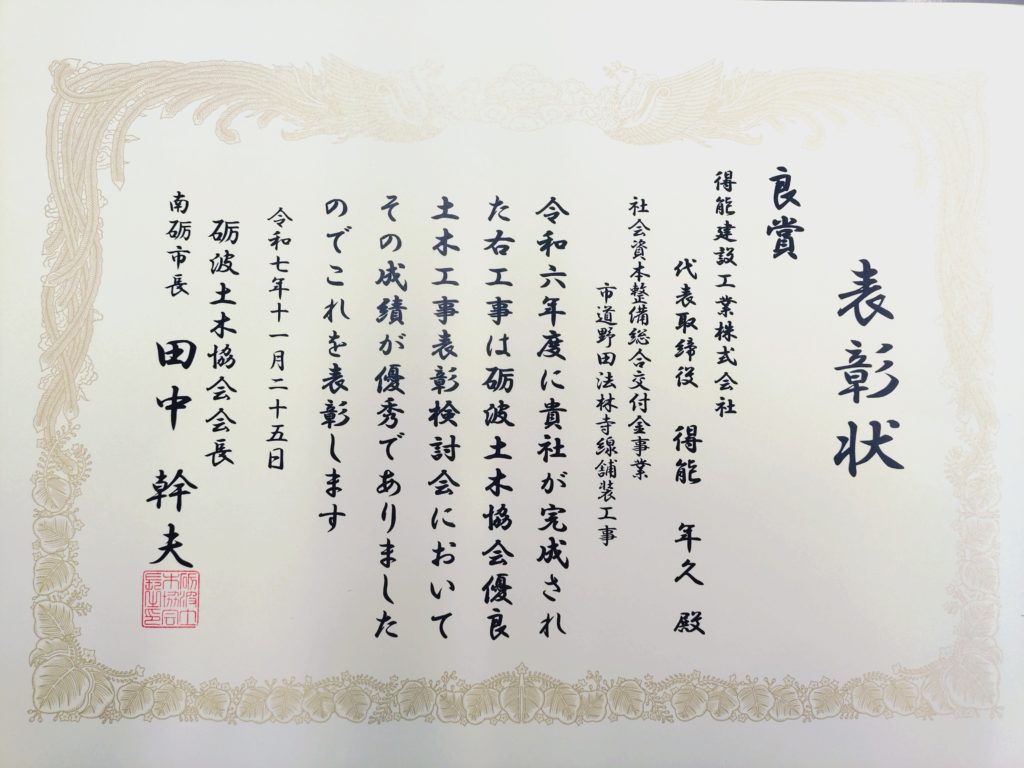 表彰状
良賞
得能建設工業株式会社
代表取締役 得能 年久 殿
社会資本整備総合交付金事業
市道野田法林寺線舗装工事
令和六年度に貴社が完成され
た右工事は砺波土木協会優良
土木工事表彰検討会において
その成績が優秀でありました
のでこれを表彰します
令和七年十一月二十五日
砺波土木協会会長
南砺市長 田中 幹夫
砺波土
木協会
長之印